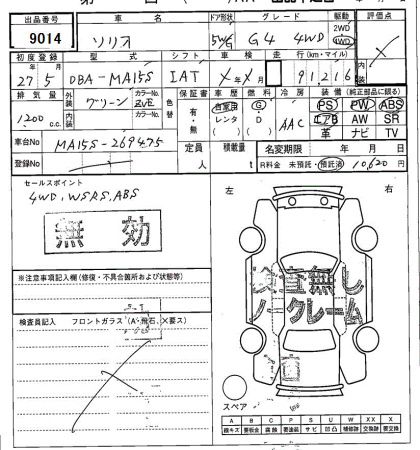 出品番号 車名 ドア形状 グレード 駆動 評価点
9014 ソリオ 5W G4 4WD 2WD 4WD
初度登録 型式 シフト 車検 走行(km・マイル) 内装
27 5 DBA-MA15S IAT 年 月 91,216
排気量 外装 カラーNo. 色替 保証書 車歴 燃料 冷房 装備(純正部品に限る)
1200 c.c. グリーン ZVE 有・無 自家用 G AAC PS PW ABS
内装 カラーNo. レンタ D エアB AW SR
革 ナビ TV
車台No MA15S-269475 定員 人 積載量 t 名変期限 年 月 日
登録No R料金 未預託・預託済 10,620 円
セールスポイント
4WD、WSRS、ABS
無効
左 右
※注意事項記入欄(修復・不具合箇所および状態等)
検査員記入 フロントガラス(A・飛石、X要ス)
検査無し
ノークレーム
スペア
A B C P S U W XX X
線キズ 要板金 腐蝕 要塗装 サビ 凹凸 補修跡 交換跡 要交換